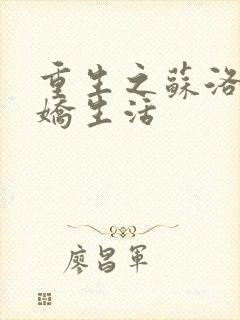 重生之蘇洛
嬌生活
廖昌軍